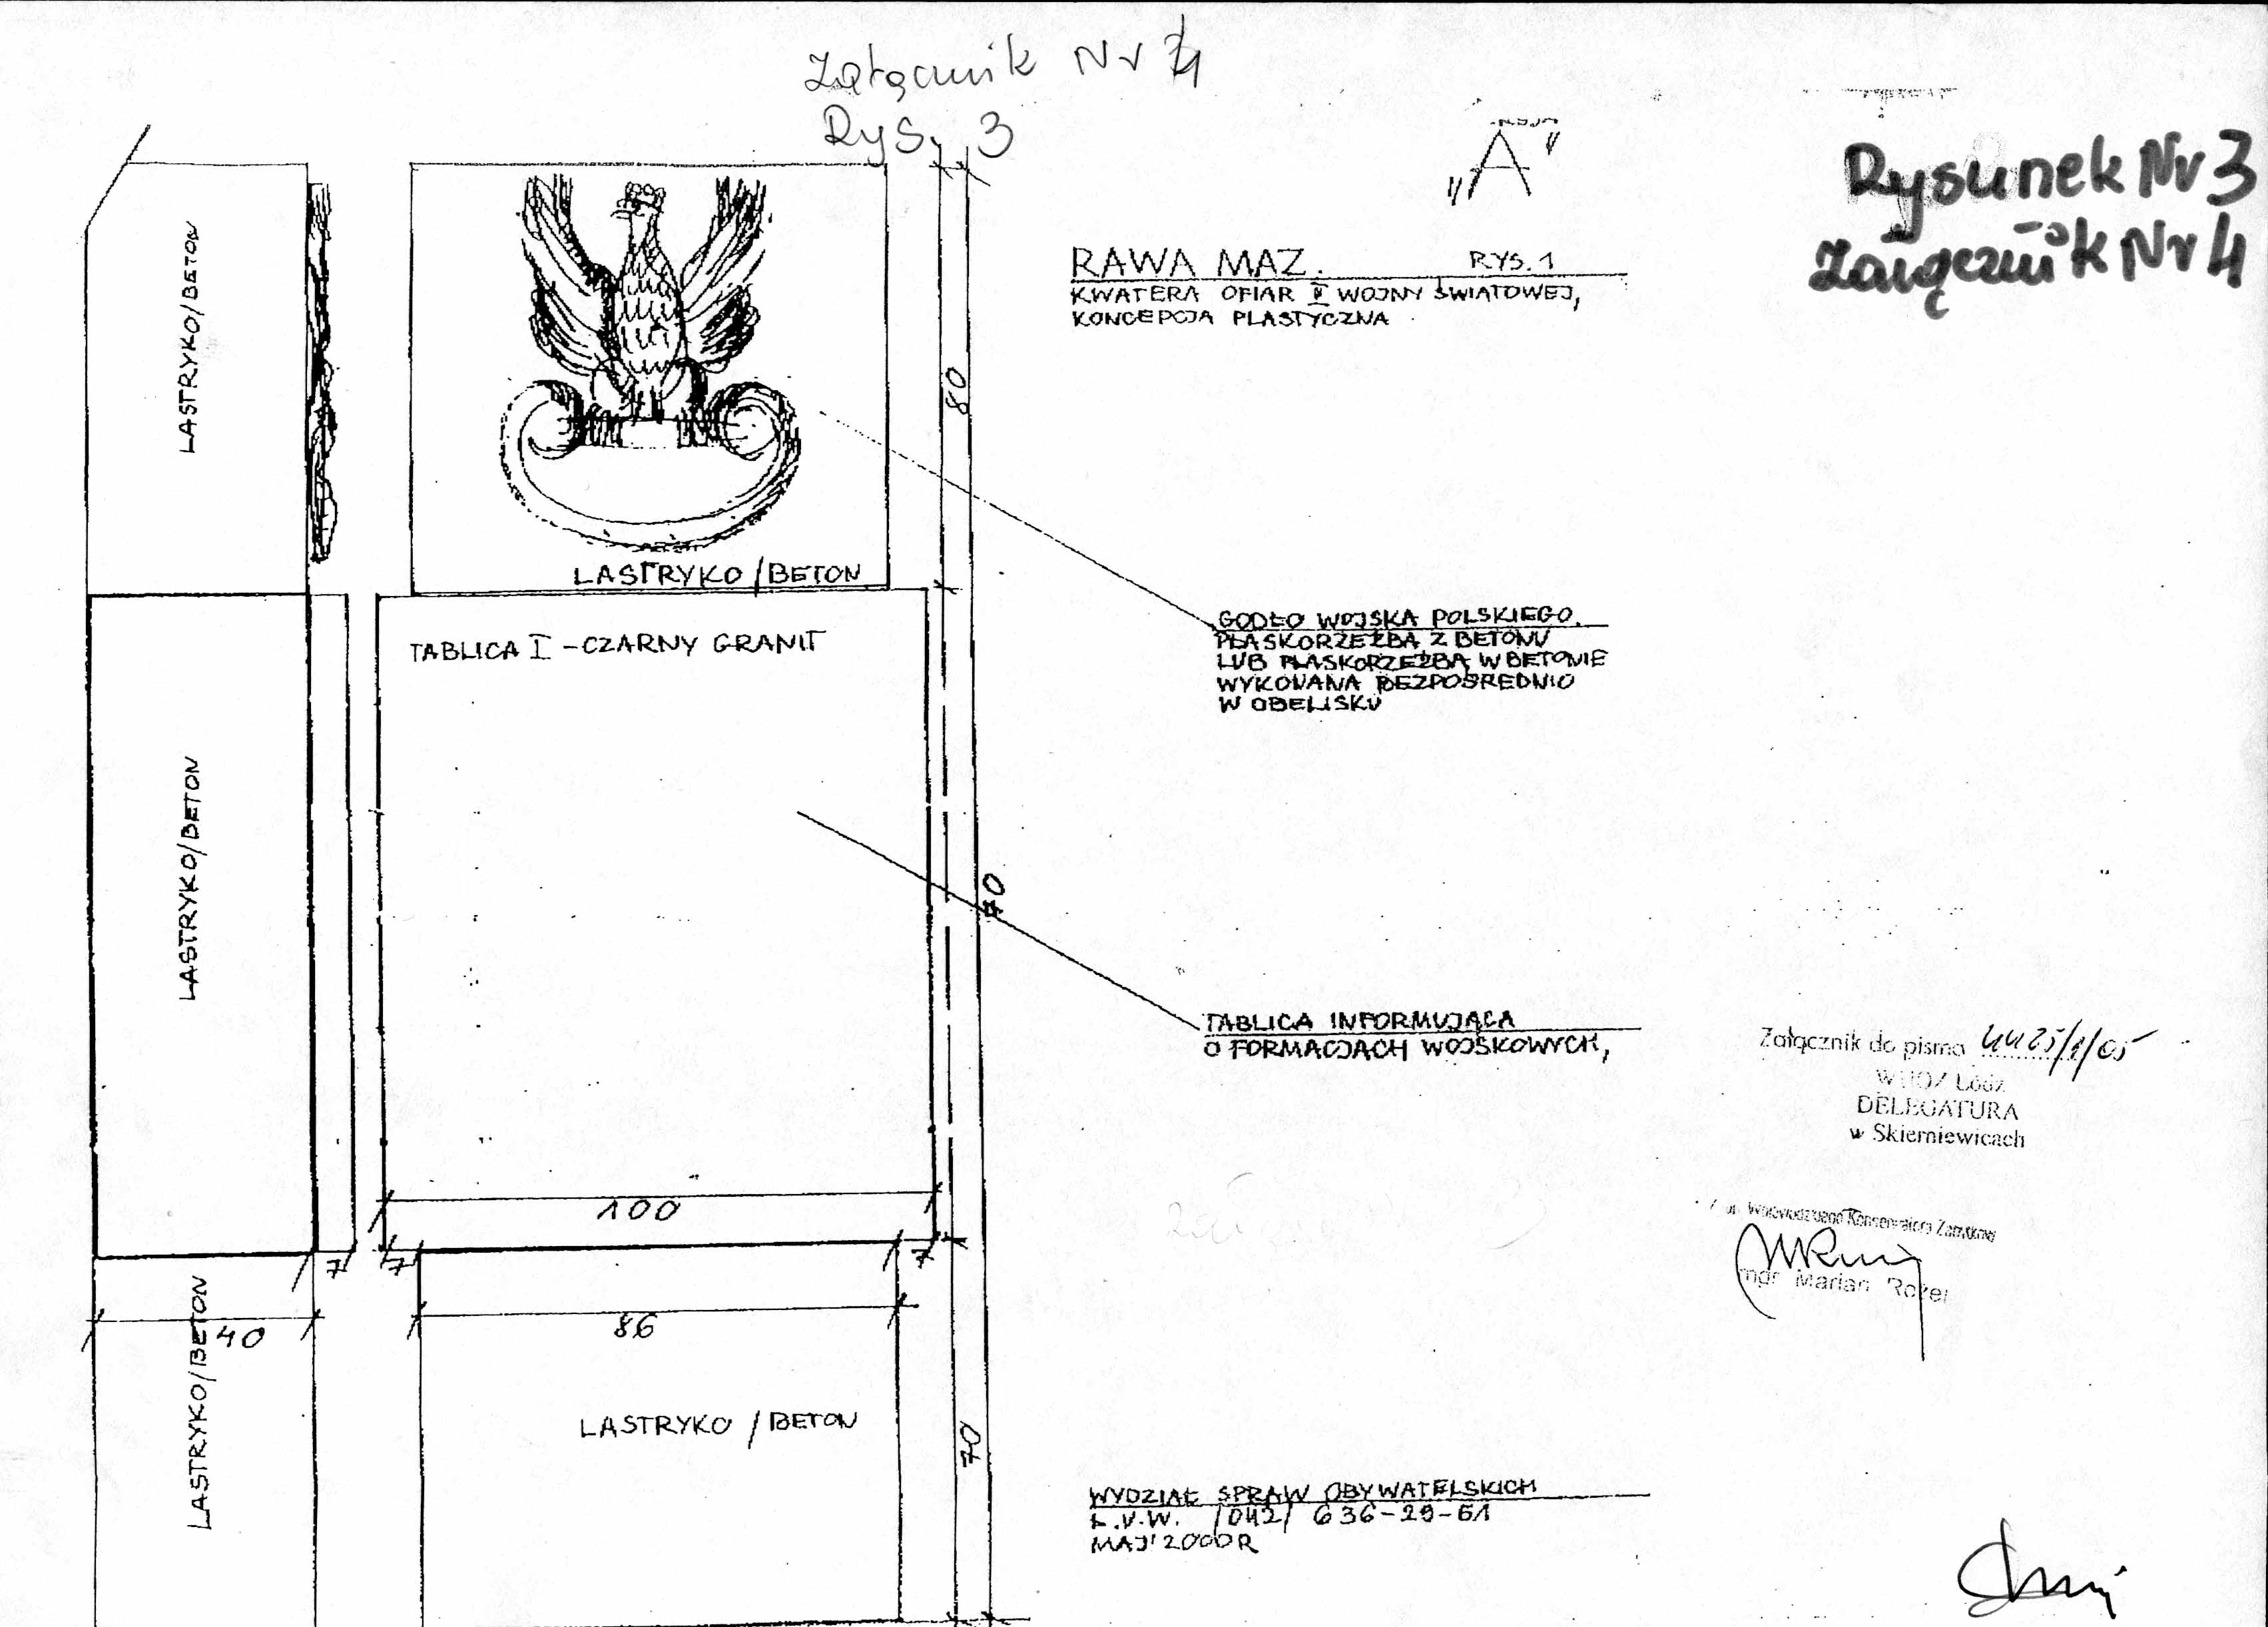 Załącznik Nr 4
Rys. 3
"A"
Rysunek Nr 3
Załącznik Nr 4
RAWA MAZ. RYS. 1
KWATERA OFIAR II WOJNY ŚWIATOWEJ,
KONCEPCJA PLASTYCZNA
LASTRYKO/BETON
80
LASTRYKO/BETON
TABLICA I - CZARNY GRANIT
GODŁO WOJSKA POLSKIEGO.
PŁASKORZEŹBA Z BETONU
LUB PŁASKORZEŹBA W BETONIE
WYKONANA BEZPOŚREDNIO
W OBELISKU
LASTRYKO/BETON
70
TABLICA INFORMUJĄCA
O FORMACJACH WOJSKOWYCH,
Załącznik do pisma
WUOZ Łódź
DELEGATURA
w Skierniewicach
100
7
7
7
Wojewódzkiego Konserwatora Zabytków
mgr Marian
40
86
LASTRYKO/BETON
LASTRYKO / BETON
70
WYDZIAŁ SPRAW OBYWATELSKICH
Ł.U.W. /042/ 636-29-51
MAJ'2000R